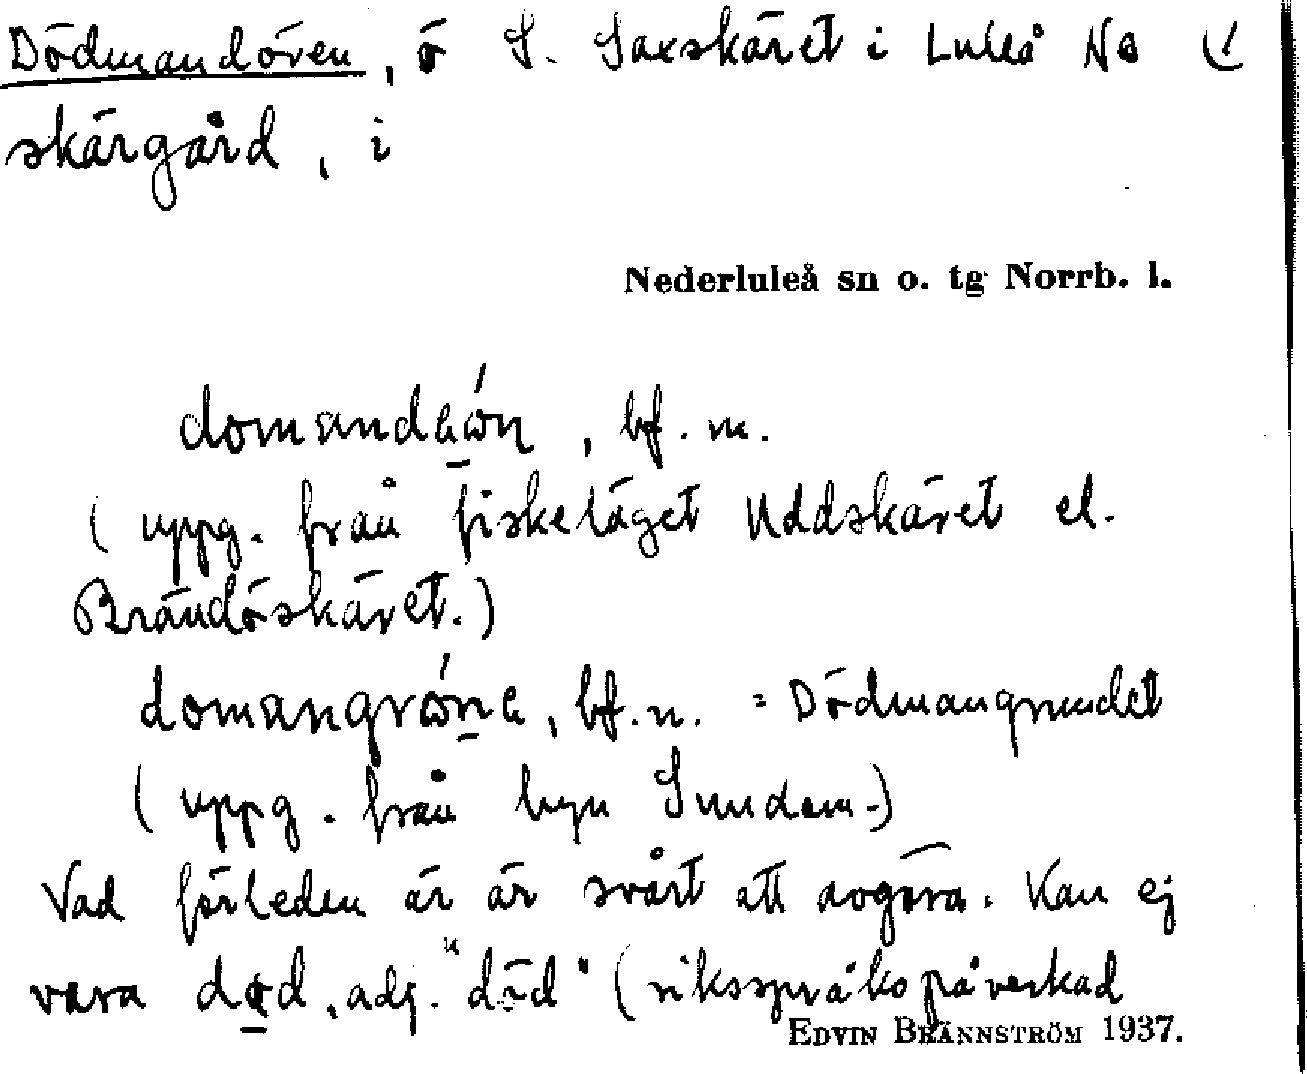 Dödmandören, ö S. Saxskäret i Luleå No
skärgård, i
Nederluleå sn o. tg Norrb. l.
bf. m.
(uppg. från fiskeläget Uddskäret el.
Brändöskäret.)
bf. n. = Dödmangrundet
(uppg. från byn Sundom.)
Vad förleden är är svårt att avgöra. Kan ej
vara død, adj. "död" (riksspråkspåverkad
EDVIN BRÄNNSTRÖM 1937.